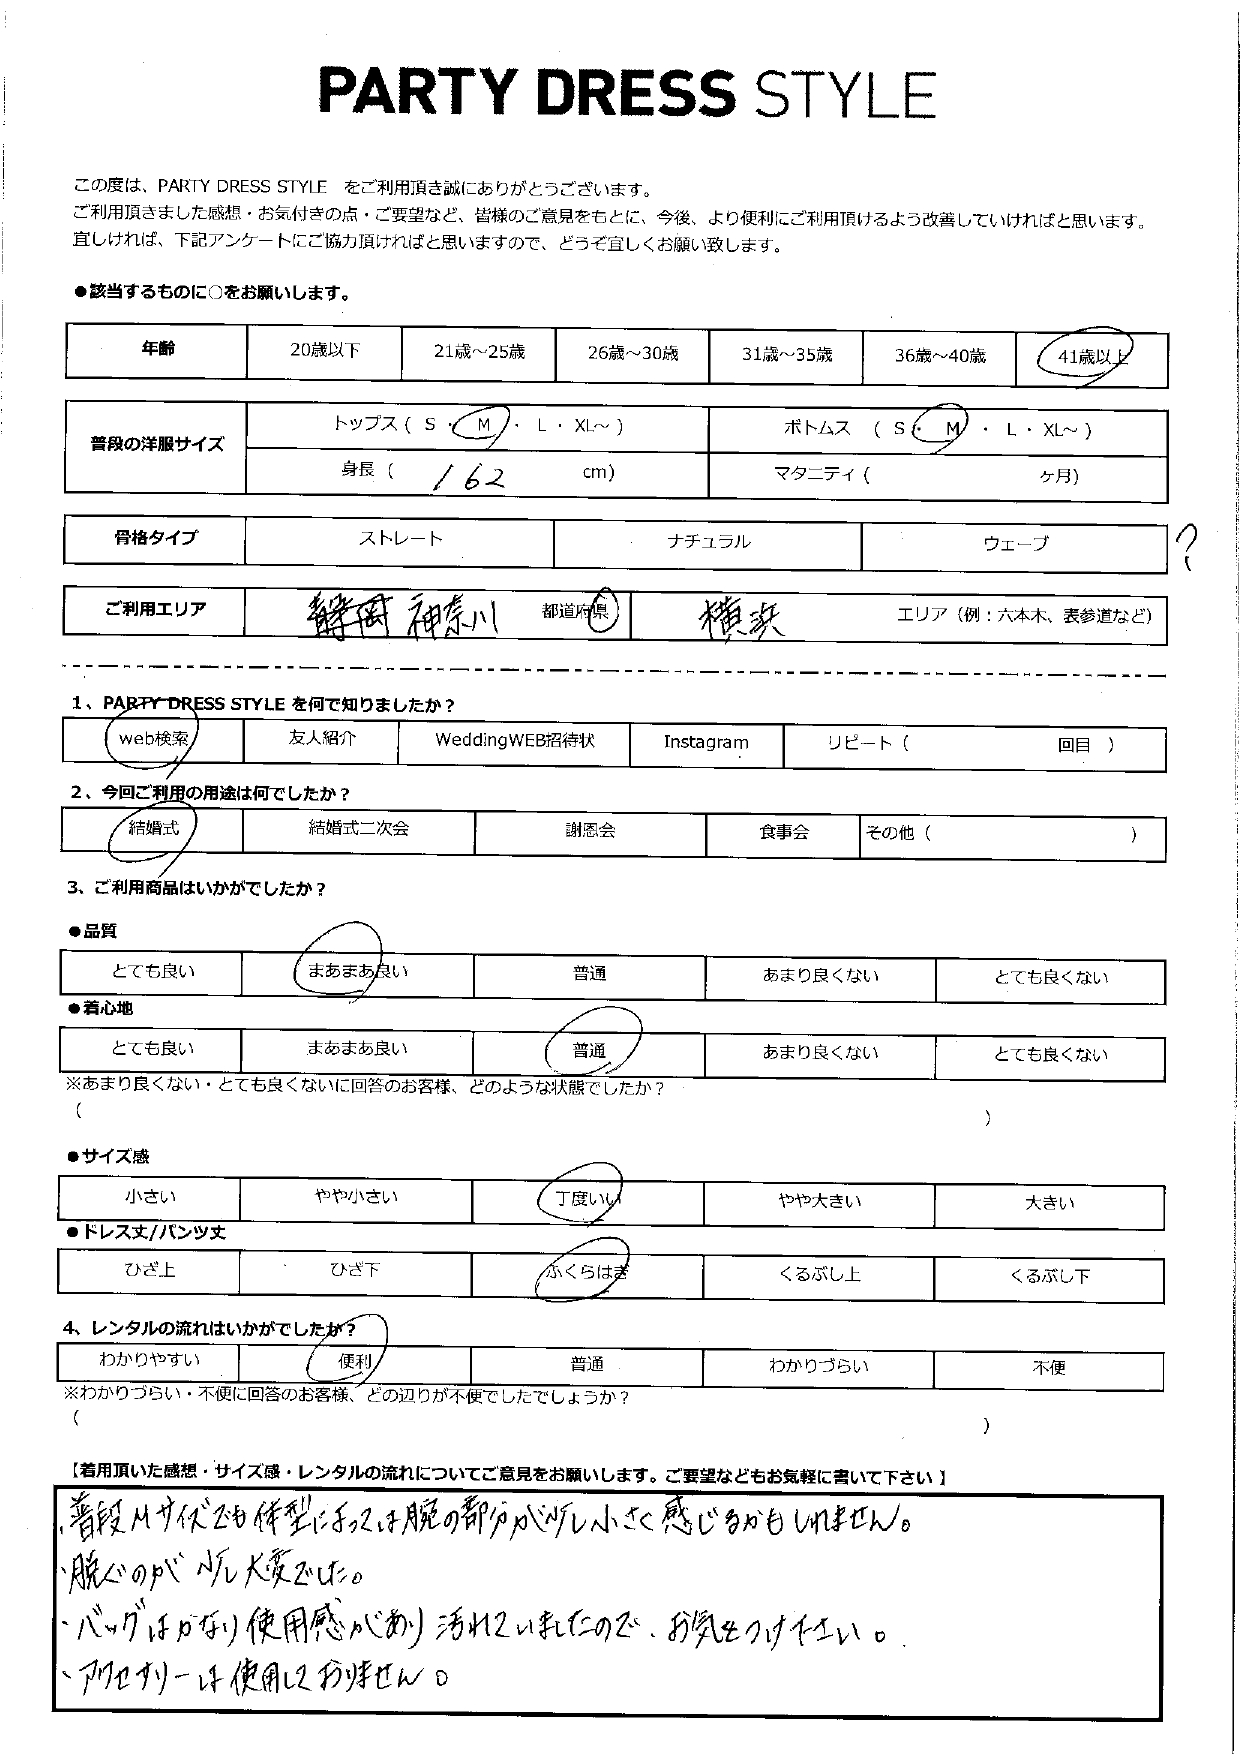 PARTY DRESS STYLE
この度は、PARTY DRESS STYLE をご利用頂き誠にありがとうございます。
ご利用頂きました感想・お気付きの点・ご要望など、皆様のご意見をもとに、今後、より便利にご利用頂けるよう改善していければと思います。
宜しければ、下記アンケートにご協力頂ければと思いますので、どうぞ宜しくお願い致します。
●該当するものに○をお願いします。
年齢 20歳以下 21歳～25歳 26歳～30歳 31歳～35歳 36歳～40歳 41歳以上
普段の洋服サイズ トップス ( S ・ M ・ L ・ XL～ ) ボトムス ( S ・ M ・ L ・ XL～ )
身長 ( 162 cm) マタニティ ( ヶ月)
骨格タイプ ストレート ナチュラル ウェーブ ?
ご利用エリア 静岡 神奈川 都道府県 横浜 エリア（例：六本木、表参道など）
1、PARTY DRESS STYLE を何で知りましたか？
web検索 友人紹介 WeddingWEB招待状 Instagram リピート ( 回目 )
2、今回ご利用の用途は何でしたか？
結婚式 結婚式二次会 謝恩会 食事会 その他 ( )
3、ご利用商品はいかがでしたか？
●品質
とても良い まあまあ良い 普通 あまり良くない とても良くない
●着心地
とても良い まあまあ良い 普通 あまり良くない とても良くない
※あまり良くない・とても良くないに回答のお客様、どのような状態でしたか？
( )
●サイズ感
小さい やや小さい 丁度いい やや大きい 大きい
●ドレス丈/パンツ丈
ひざ上 ひざ下 ふくらはぎ くるぶし上 くるぶし下
4、レンタルの流れはいかがでしたか？
わかりやすい 便利 普通 わかりづらい 不便
※わかりづらい・不便に回答のお客様、どの辺りが不便でしたでしょうか？
( )
【着用頂いた感想・サイズ感・レンタルの流れについてご意見をお願いします。ご要望などもお気軽に書いて下さい 】
・普段Mサイズでも体型によっては腕の部分が少し小さく感じるかもしれません。
・脱ぐのが少し大変でした。
・バッグはかなり使用感があり汚れていましたので、お気をつけ下さい。
・アクセサリーは使用しておりません。